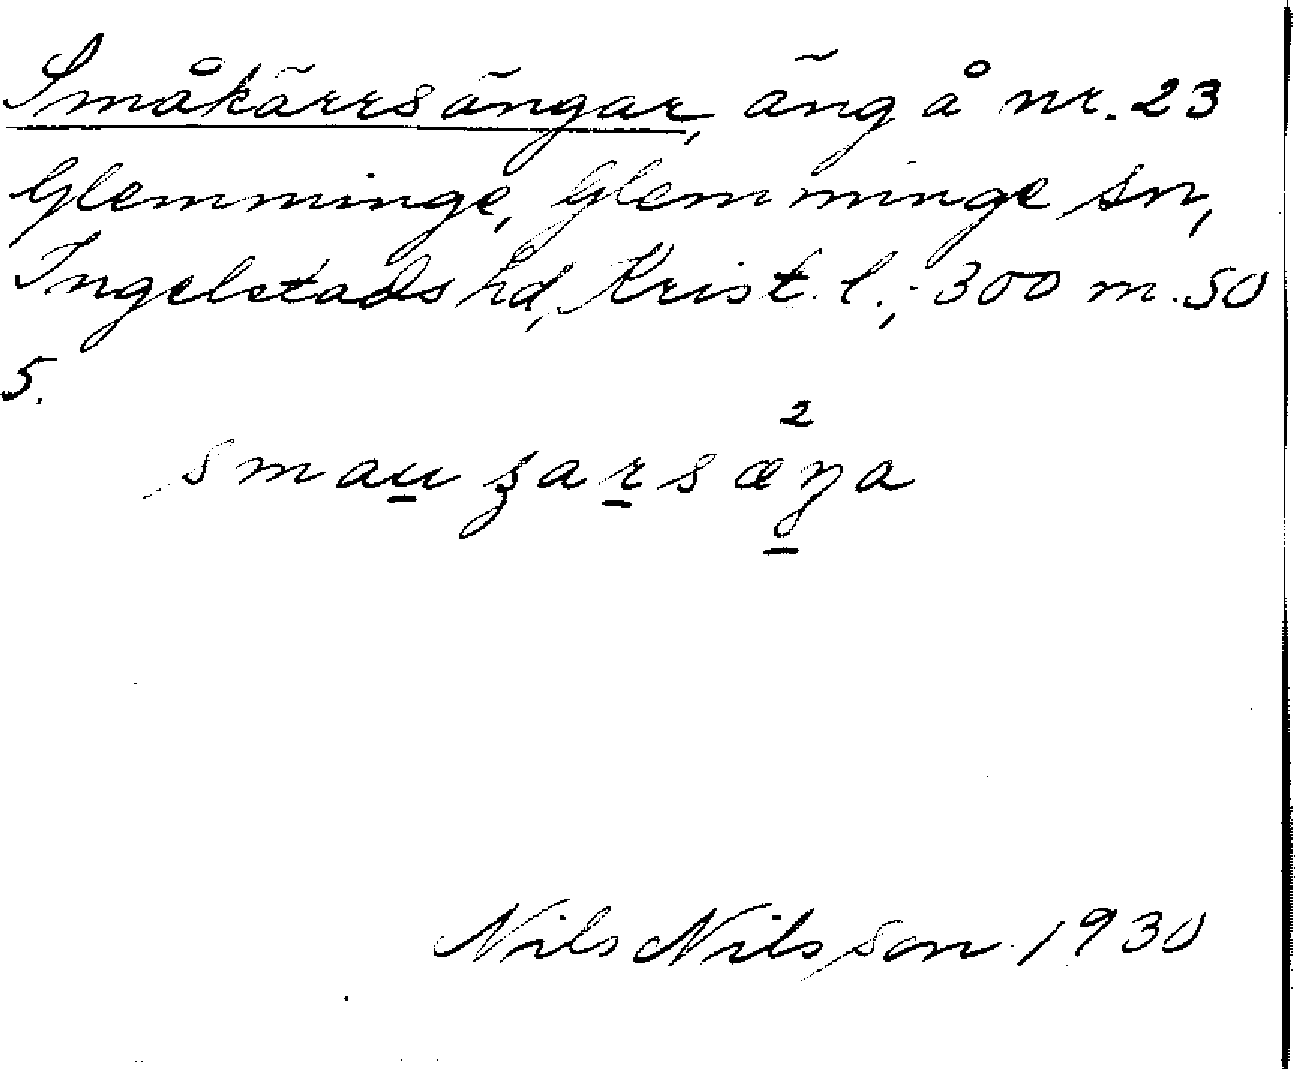 Småkärrsängar, äng å nr. 23
Glemminge, Glemminge sn,
Ingelstads hd, Krist. l.; 300 m. SO
5.
2
smau̲ ʒar̲sæŋ̲a
Nils Nilsson 1930